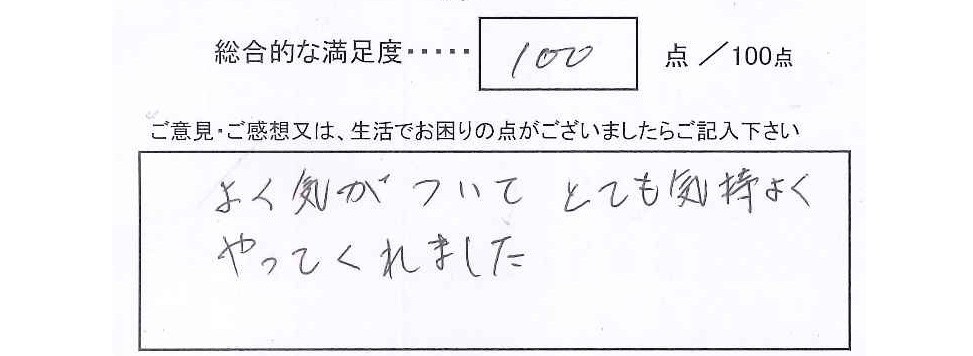 総合的な満足度・・・・・ 100 点 ／100点
ご意見・ご感想又は、生活でお困りの点がございましたらご記入下さい
よく気がついて とても気持よく
やってくれました